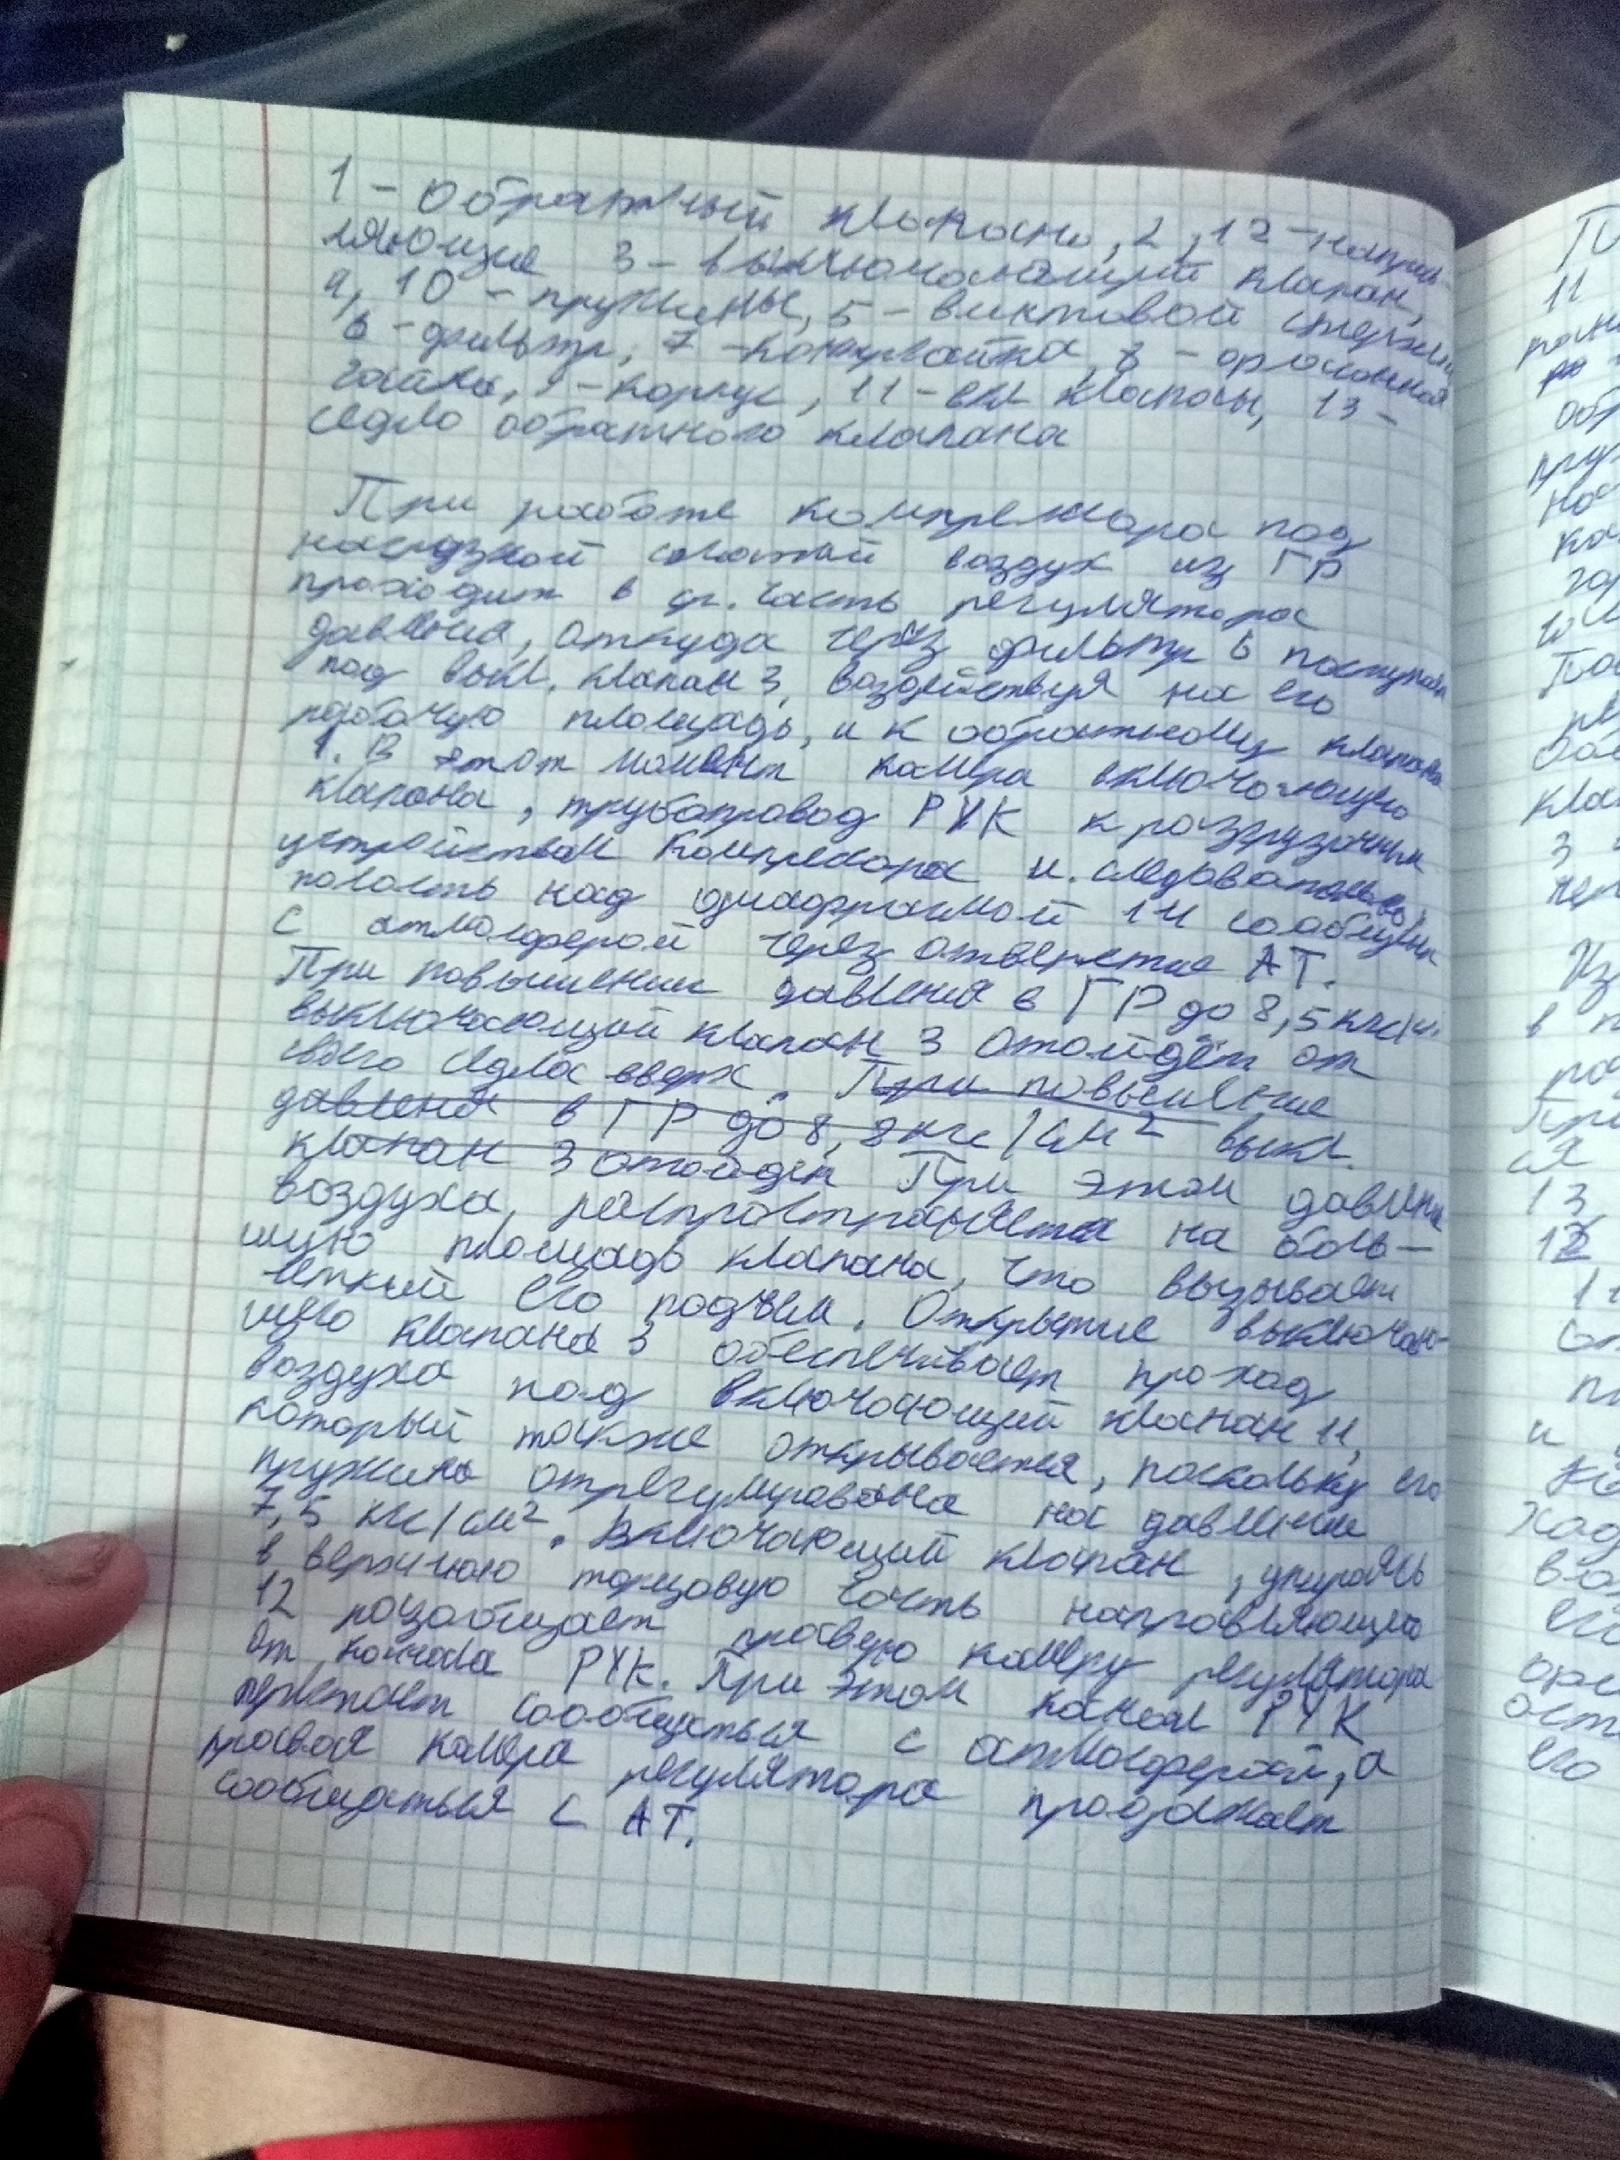 1 - обратный клапан, 2, 12 - направ-
ляющие 3 - выключающий клапан,
4, 10 - пружины, 5 - винтовой стержень
6 - фильтр, 7 - контргайка, 8 -
гайка, 9 - корпус, 11 - вкл клапаны, 13 -
седло обратного клапана
При работе компрессора под
нагрузкой сжатый воздух из ГР
проходит в др. часть регулятора
давления, откуда через фильтр 6 поступает
под выкл. клапан 3, воздействуя на его
рабочую площадь, и к обратному клапану
1. В этот момент камера включающего
клапана, трубопровод РХК к разгрузочным
устройствам компрессора и следовательно,
полость над диафрагмой 14 сообщены
с атмосферой через отверстие АТ.
При повышении давления в ГР до 8,5 кгс/см
выключающий клапан 3 отойдёт от
своего седла вверх. При повышение
давления в ГР до 8,8 кгс/см² выкл.
клапан 3 отойдет При этом давление
воздуха распространяется на боль-
шую площадь клапана, что вызывает
четкий его подъем. Открытие выключаю-
щего клапана 3 обеспечивает проход
воздуха под включающий клапан 11,
который также открывается, поскольку его
пружина отрегулирована на давление
7,5 кгс/см². Включающий клапан, упираясь
в верхнюю торцовую часть направляющего
12 разобщает правую камеру регулятора
от канала РХК. При этом канал РХК
перестает сообщаться с атмосферой, а
правая камера регулятора продолжает
сообщаться с АТ.